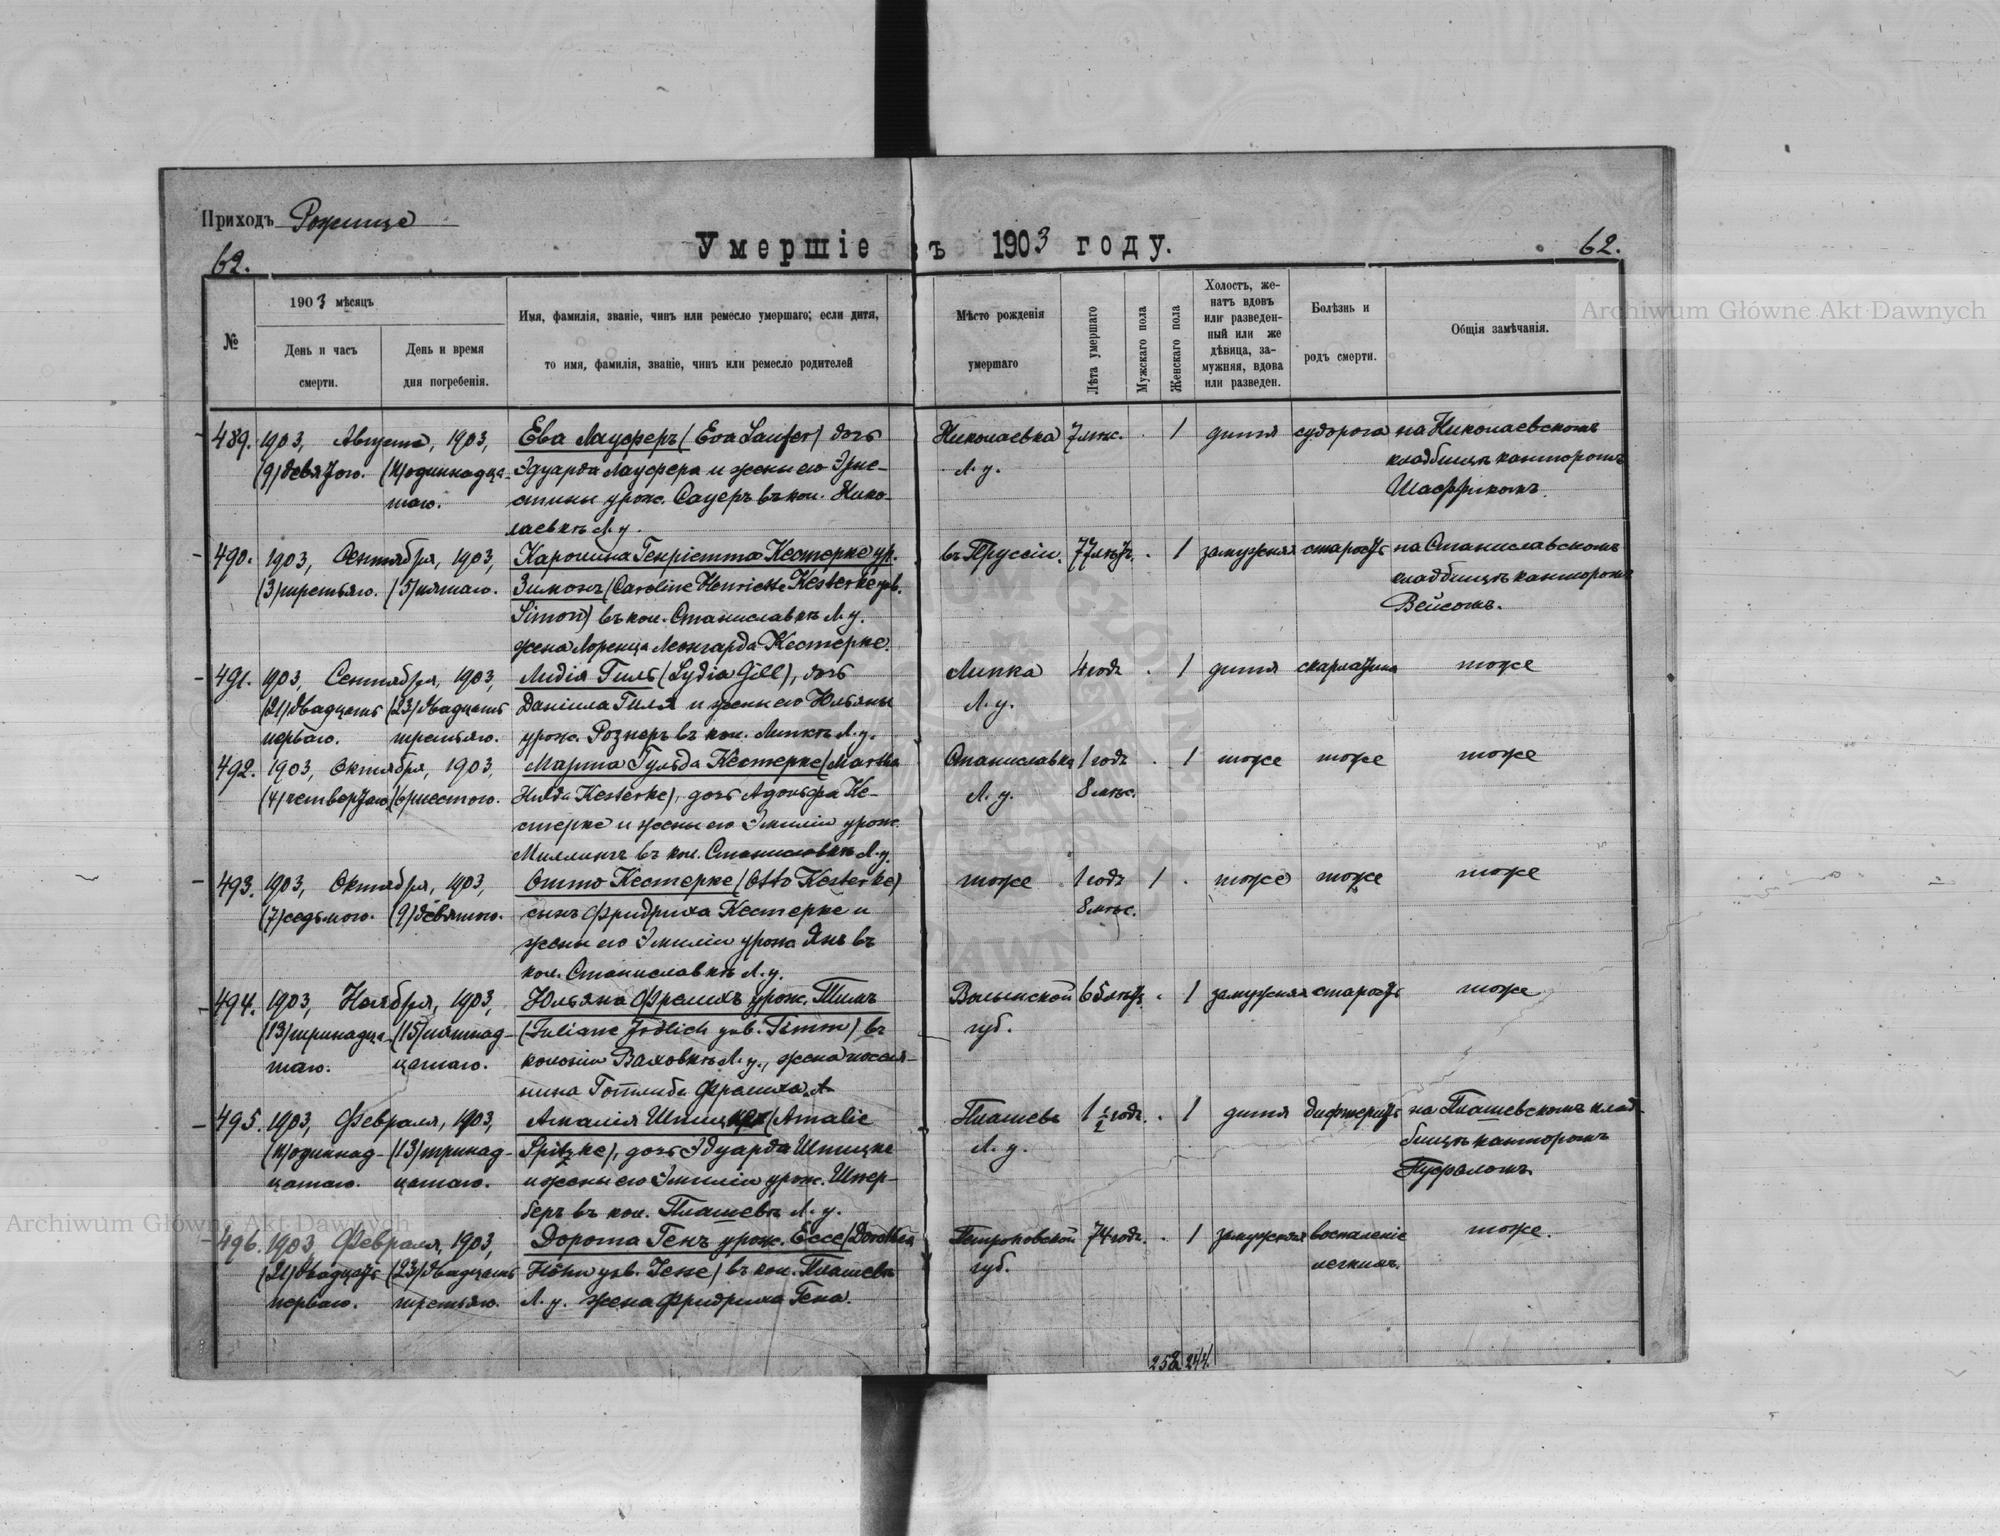 Приходъ Рожище
Умершіе въ 1903 году.
62.
62.
№
1903 мѣсяцъ
День и часъ смерти.
День и время дня погребенія.
Имя, фамилія, званіе, чинъ или ремесло умершаго; если дитя,
то имя, фамилія, званіе, чинъ или ремесло родителей
Мѣсто рожденія умершаго
Лѣта умершаго
Мужскаго пола
Женскаго пола
Холостъ, же-
натъ вдовъ
или разведен-
ный или же
дѣвица, за-
мужняя, вдова
или разведен.
Болѣзнь и
родъ смерти.
Общія замѣчанія.
489. 1903, Августа, 1903, Ева Лауферъ (Eva Laufer) дочь Николаевка 7 мѣс. . 1 дитя судорога на Николаевскомъ
(9) девятого. (11) одиннадца- Эдуарда Лауфера и жены его Эрне- Л. у. кладбищѣ канторомъ
таго. стины урож. Сауеръ въ кол. Нико- Шаффрикомъ.
лаевкѣ Л. у.
490. 1903, Сентября, 1903, Каролина Генріетта Кестерке ур. въ Пруссіи. 77 лѣтъ . 1 замужняя старость на Станиславскомъ
(3) третьяго. (5) пятаго. Зимонъ (Caroline Henriette Kesterke geb. кладбищѣ канторомъ
Simon) въ кол. Станиславкѣ Л. у. Вейсомъ.
жена Лоренца Леонгарда Кестерке.
491. 1903, Сентября, 1903, Лидія Гиль (Lydia Gill), дочь Липка 4 года . 1 дитя скарлатина тоже
(21) двадцать (23) двадцать Даніила Гиля и жены его Юльяны Л. у.
перваго. третьяго. урож. Рознеръ въ кол. Липкѣ Л. у.
492. 1903, Октября, 1903, Марта Гульда Кестерке (Martha Станиславка 1 годъ . 1 тоже тоже тоже
(4) четвертаго (6) шестого. Hulda Kesterke), дочь Адольфа Ке- Л. у. 8 мѣс.
стерке и жены его Эмиліи урож.
Миллингъ въ кол. Станиславкѣ Л. у.
493. 1903, Октября, 1903, Отто Кестерке (Otto Kesterke) тоже 1 годъ 1 . тоже тоже тоже
(7) седьмого. (9) девятого. сынъ Фридриха Кестерке и 8 мѣс.
жены его Эмиліи урож. Янъ въ
кол. Станиславкѣ Л. у.
494. 1903, Ноября, 1903, Юльяна Фрелихъ урож. Тимъ Волынской 65 лѣтъ . 1 замужняя старость тоже
(13) тринадца- (15) пятнад- (Juliane Frölich geb. Timm) въ губ.
таго. цатаго. колоніи Валовкѣ Л. у., жена поселя-
нина Готлиба Фрелиха.
495. 1903, Февраля, 1903, Амалія Шпицке (Amalie Пляшевъ 1 1/2 года. . 1 дитя дифтеритъ на Пляшевскомъ клад-
(11) одиннад- (13) тринад- Spitzke), дочь Эдуарда Шпицке Л. у. бищѣ канторомъ
цатаго. цатаго. и жены его Эмиліи урож. Штер-
беръ въ кол. Пляшевѣ Л. у.
496. 1903, Февраля, 1903, Дорота Генъ урож. Ессе (Dorothea Петроковской 74 года. . 1 замужняя воспаленіе тоже.
(21) двадцать (23) двадцать Höhn geb. Jesse) въ кол. Пляшевѣ губ. легкихъ.
перваго. третьяго. Л. у. жена Фридриха Гена.
252 244.
Archiwum Główne Akt Dawnych
Archiwum Główne Akt Dawnych